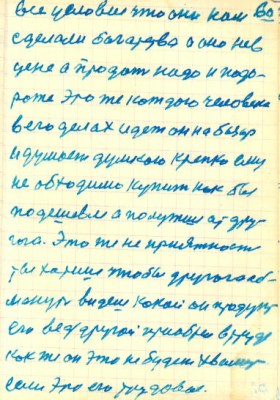 все условия что они нам Во
сделали багардва а оно нев
цене а продат надо и подо-
роже Это же каждого человека
в его делах идет он на базар
и думает думкою крепко ему
не обходимо купит как бы
подешевле а получше ад дру-
гога. Это ж не приятност
ты хариш чтобы другога об-
манут видеш какой он продукт
его вед другой приобрев труде
как ти он это не будеш хвалит
если Это его трудовое.